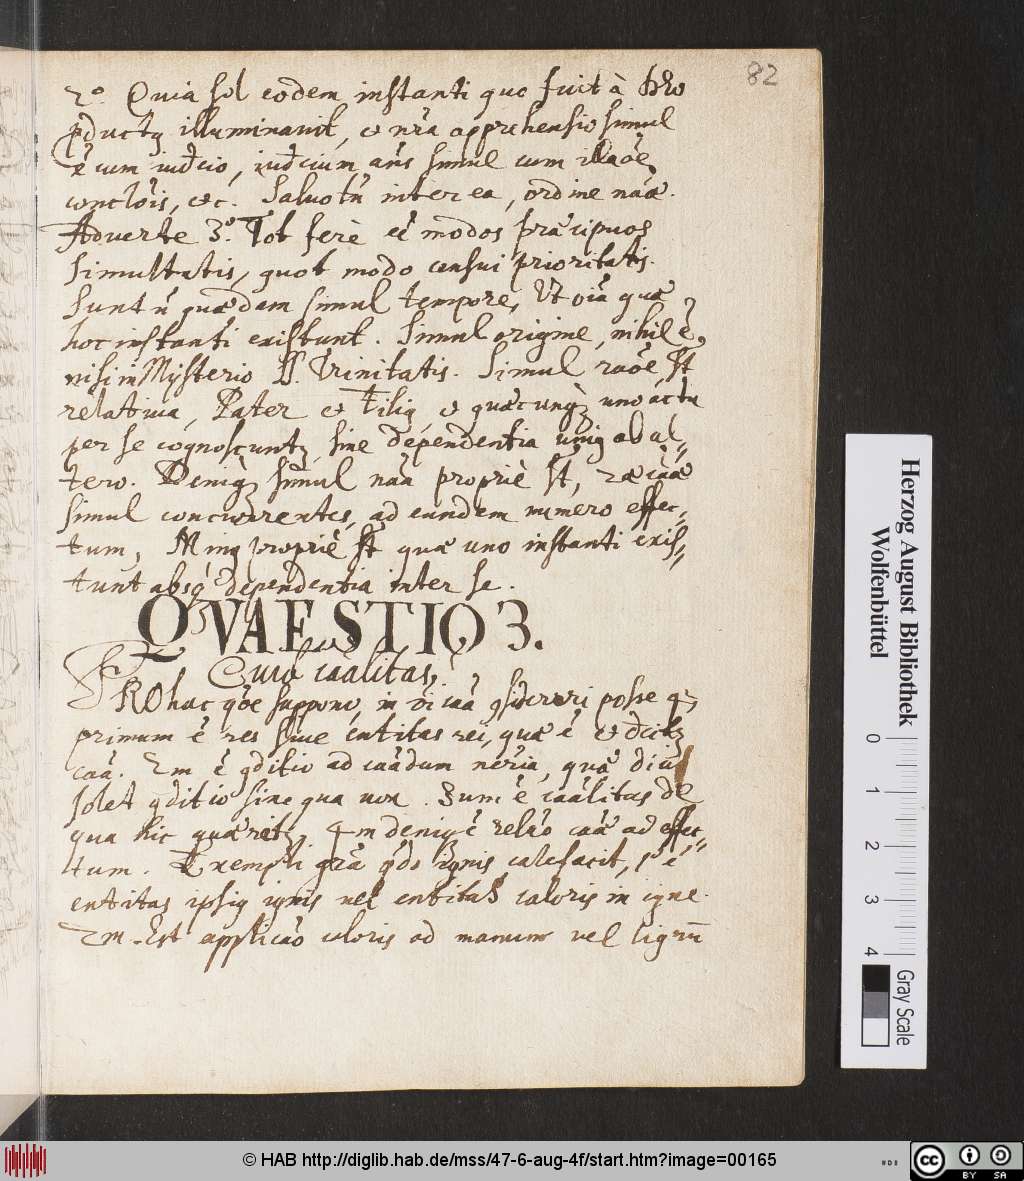 82
2º. Quia sol eodem instanti quo fuit à Deo
productꝰ illuminavit, et nr̃a apprehensio simul
ẽ cum iudicio, iudicium añs simul cum illaõe
conclõis, etc. Salvo tñ inter ea, ordine naãe.
Adverte 3º. Tot ferè eẽ modos præcipuos
simultatis, quot modo censui prioritatis.
Sunt ñ quædam simul tempore, Ut oĩa quæ
hoc instanti existunt. Simul origine, nihil ẽ,
nisi in Mysterio SS. Trinitatis. Simul raõe, st̃
relativa, Pater et Filiꝰ, et quæcunqꝫ uno actu
per se cognoscuntꝫ, sine dependentia uniꝰ ab al⸗
tero. Deniqꝫ simul naã propriè st̃, 2æ caãæ
simul concurrentes, ad eundem numero effec⸗
tum, Minꝰ propriè st̃ quæ uno instanti exis⸗
tunt absqꝫ dependentia inter se.
QVAESTIO 3.
Quid caãlitas.
PRO hac qõe suppono, in oi caã considerari posse 4ꝫ
primum ẽ res sive entitas rei, quæ ẽ et dicitꝫ
caã. 2m ẽ conditio ad caãdum neria, quæ dici
solet conditio sine qua non. 3um ẽ caãlitas de
qua hic quæritꝫ, 4m deniqꝫ ẽ relaõ caãe ad effec⸗
tum. Exempli grã qdo ignis calefacit, 1º ẽ
entitas ipsiꝰ ignis vel entitas caloris in igne.
2m. Est applicaõ caloris ad manum vel lignũ
Herzog August Bibliothek
Wolfenbüttel
0 1 2 3 4
Gray Scale
© HAB http://diglib.hab.de/mss/47-6-aug-4f/start.htm?image=00165
HAB
cc BY SA